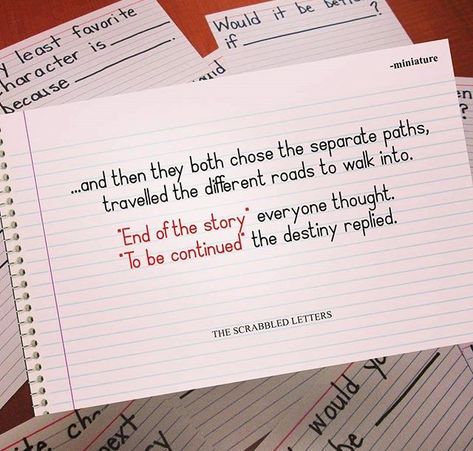 y least favorite
character is
because
Would it be be
if ?
-miniature
...and then they both chose the separate paths,
travelled the different roads to walk into.
"End of the story" everyone thought.
"To be continued" the destiny replied.
THE SCRABBLED LETTERS
would
be